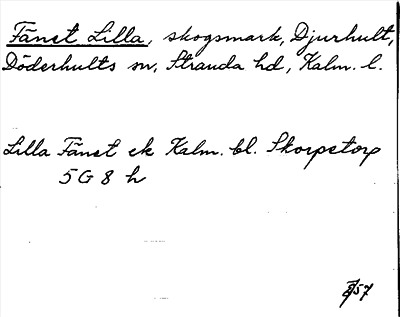 Fänet Lilla, skogsmark, Djurhult,
Döderhults sn, Stranda hd, Kalm. l.
Lilla Fänet ek Kalm. bl. Skorpetorp
5 G 8 h
57